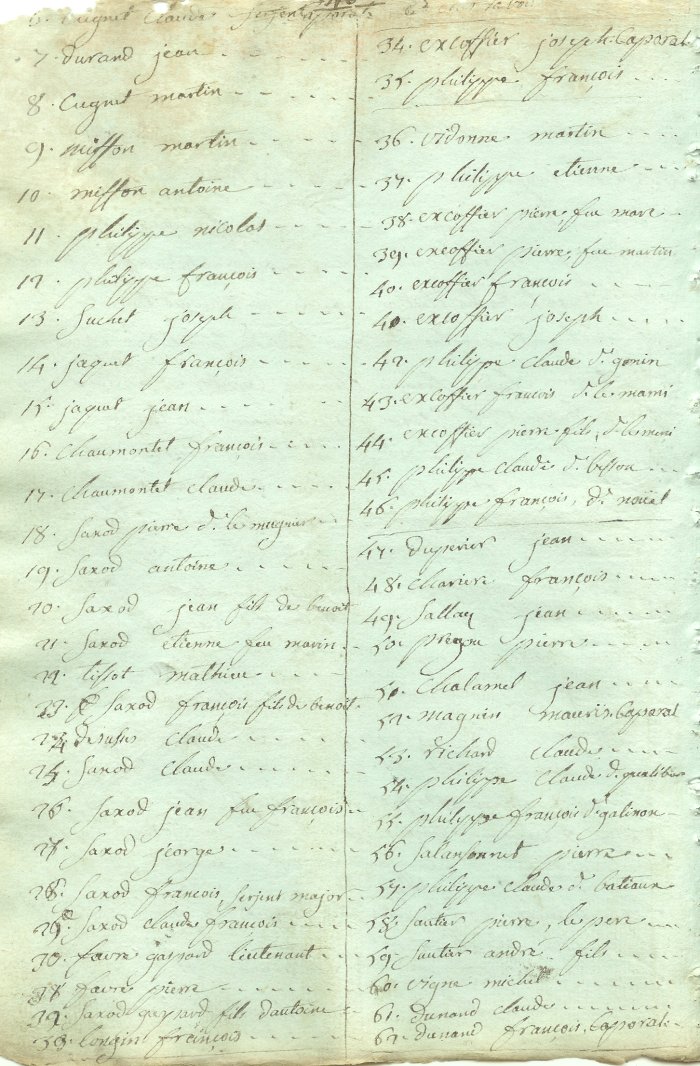 6. Cugnet Claude
7. durand jean
8. Cugnet martin
9. miffon martin
10. miffon antoine
11. philippe nicolas
12. philippe françois
13. Suchet joseph
14. jaquet françois
15. jaquet jean
16. Chaumontet françois
17. Chaumontet Claude
18. Saxod pierre d. le mugnier
19. Saxod antoine
20. Saxod jean fils de benoit
21. Saxod etienne feu marin
22. tissot mathieu
23. Saxod françois fils de benoit
24 desusies Claude
25. Saxod Claude
26. Saxod jean feu françois
27. Saxod jeorge
28. Saxod françois, serjent major
29. Saxod Claude françois
30. favre gaspard lieutenant
31 favre pierre
32. Saxod gaspard fils dantoine
33. longin françois
34. excoffier joseph. Caporal
35. philippe françois
36. vidonne martin
37. philippe etienne
38. excoffier pierre, feu marc
39. excoffier pierre, feu martin
40. excoffier françois
40. excoffier joseph
42. philippe Claude d. gonin
43. excoffier françois d. le mami
44. excoffier pierre fils, d.
45. philippe Claude d. besson
46. philippe françois, d. noüet
47. Duperier jean
48. Chariere françois
49. Sallaz jean
50. pierre
50. Chalamel jean
52. magnin mauris. Caporal
53. richard Claude
54. philippe Claude d.
55. philippe françois d. galinon
56. Salansonnet pierre
57. philippe Claude d. bateaux
58. Sautier pierre, le pere
59. Sautier andré fils
60. vigne michel
61. Dunand Claude
62. Dunand françois, Caporal